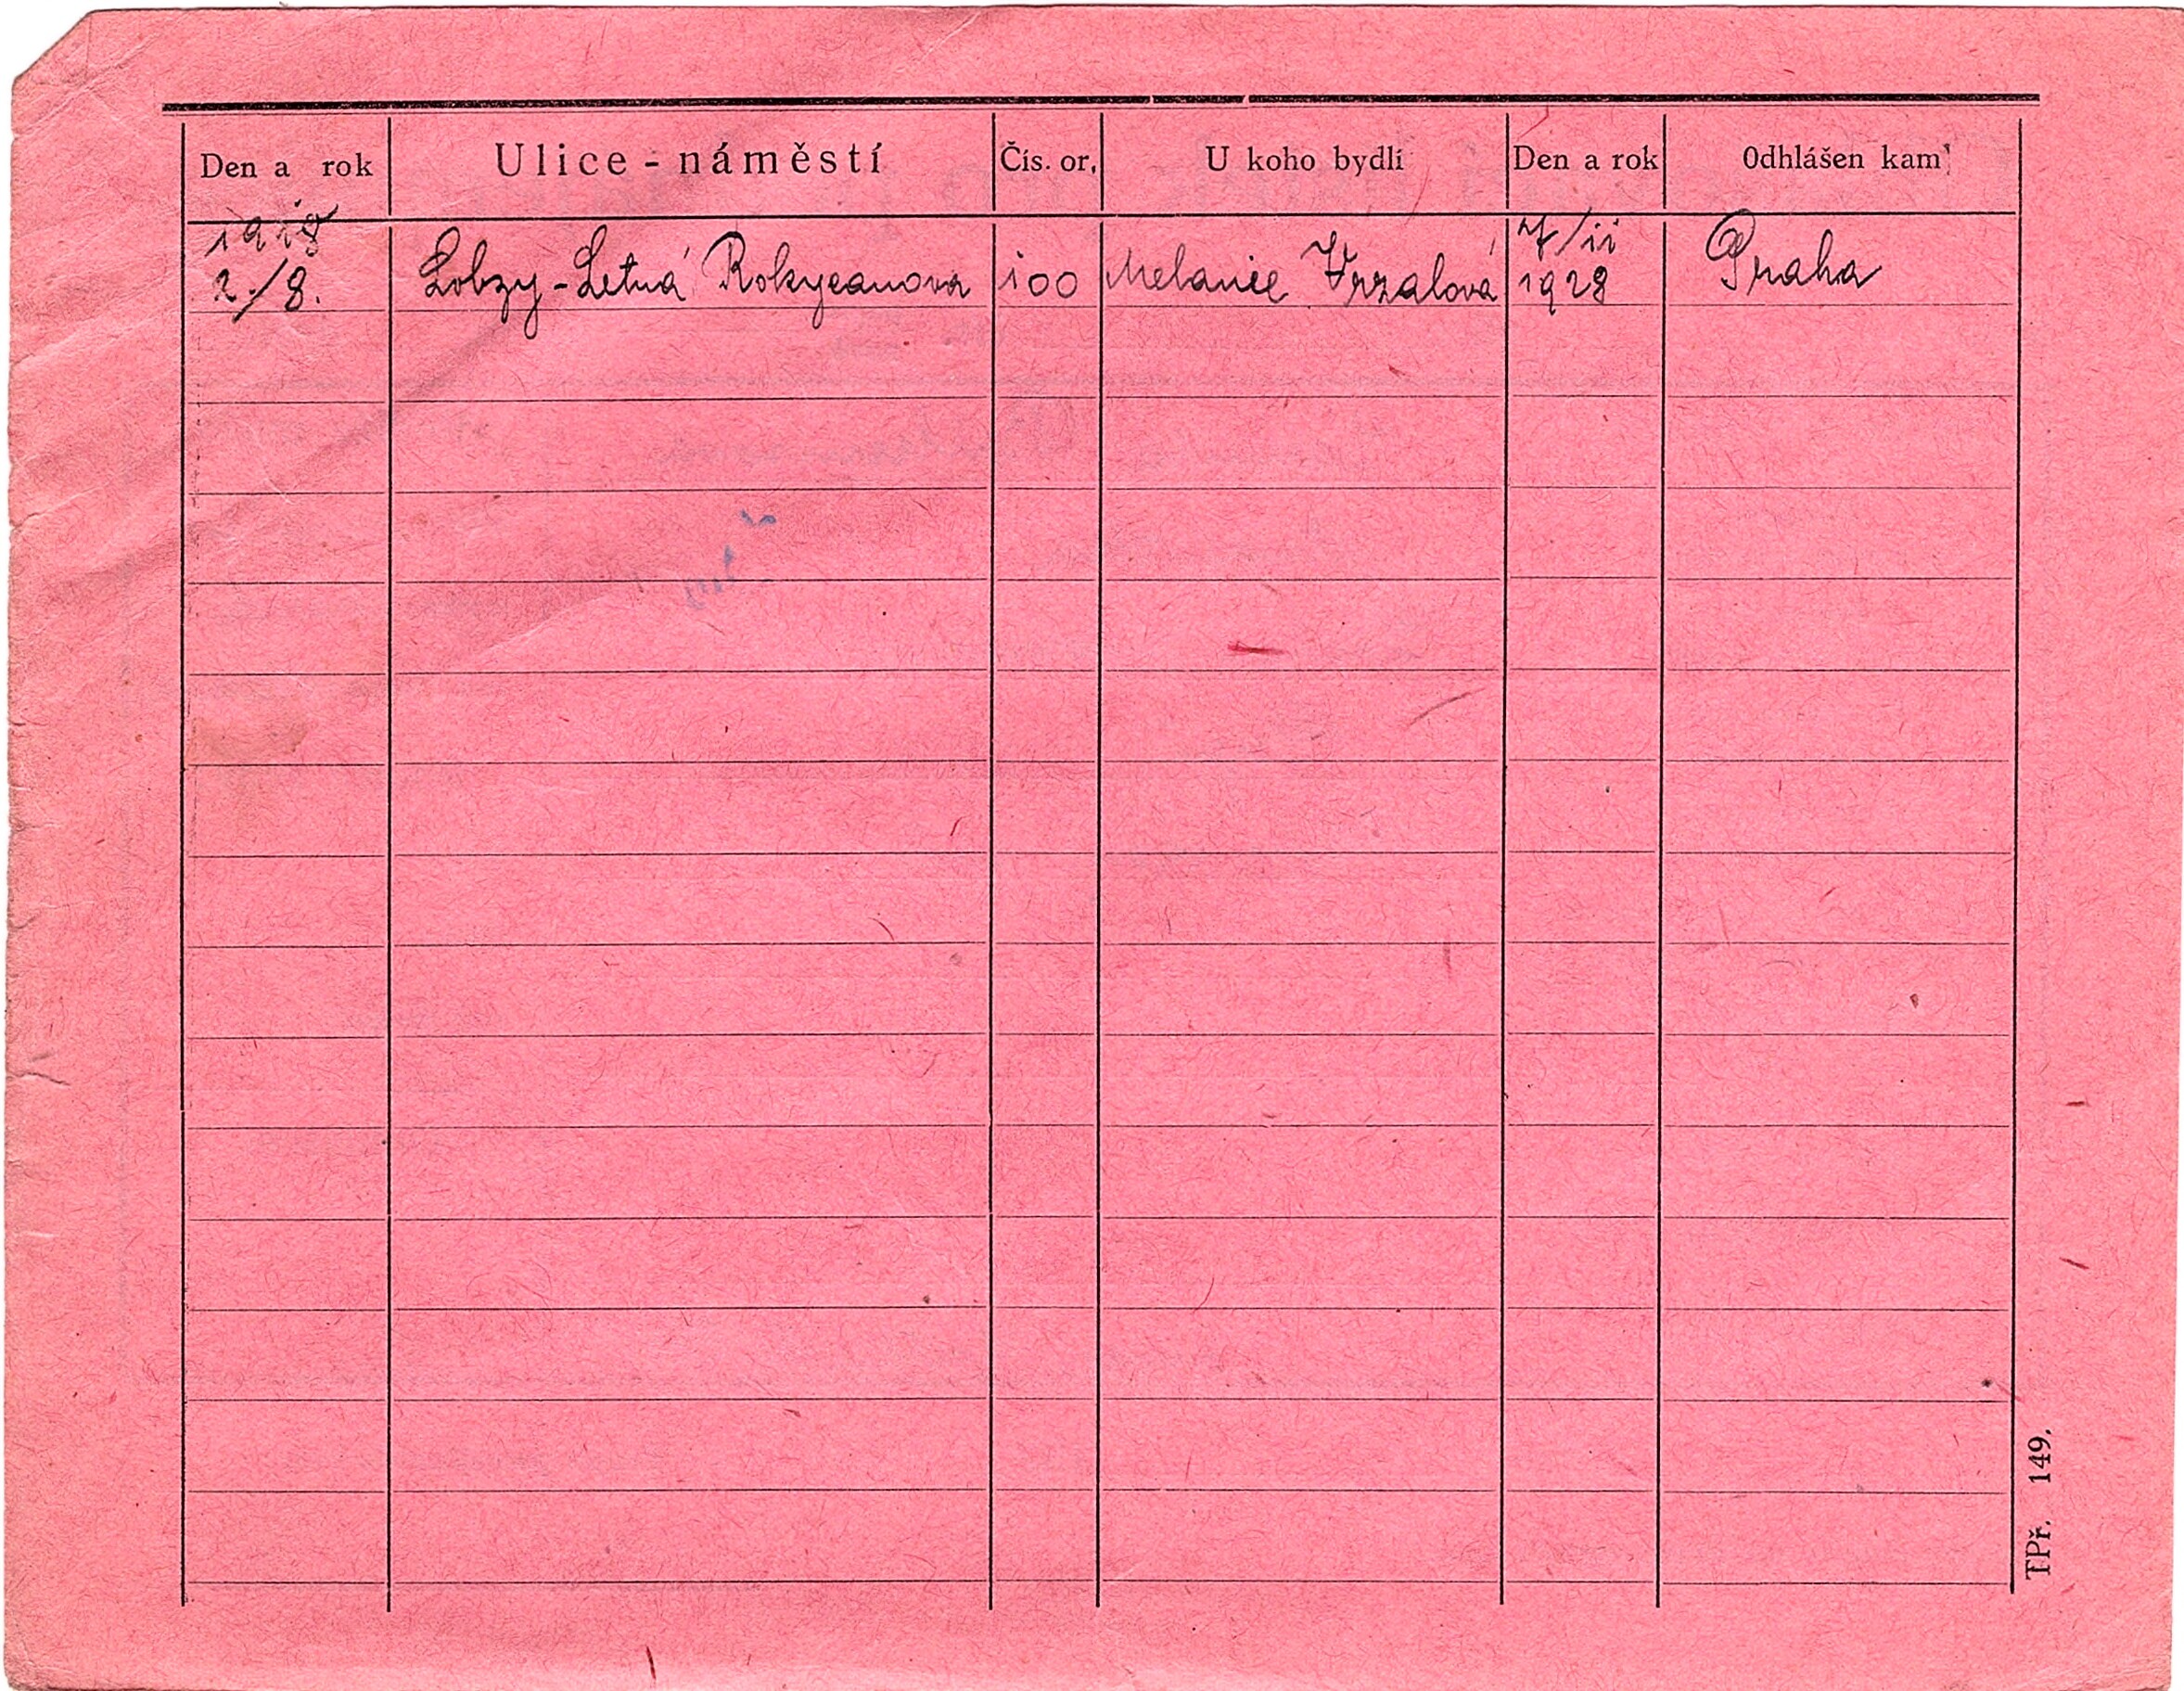 Den a rok Ulice - náměstí Čís. or. U koho bydlí Den a rok Odhlášen kam
2./8. Lobzy - Letná Rokycanova 100 Melanie Vrzalová 7/11 1928 Praha
TPř. 149.